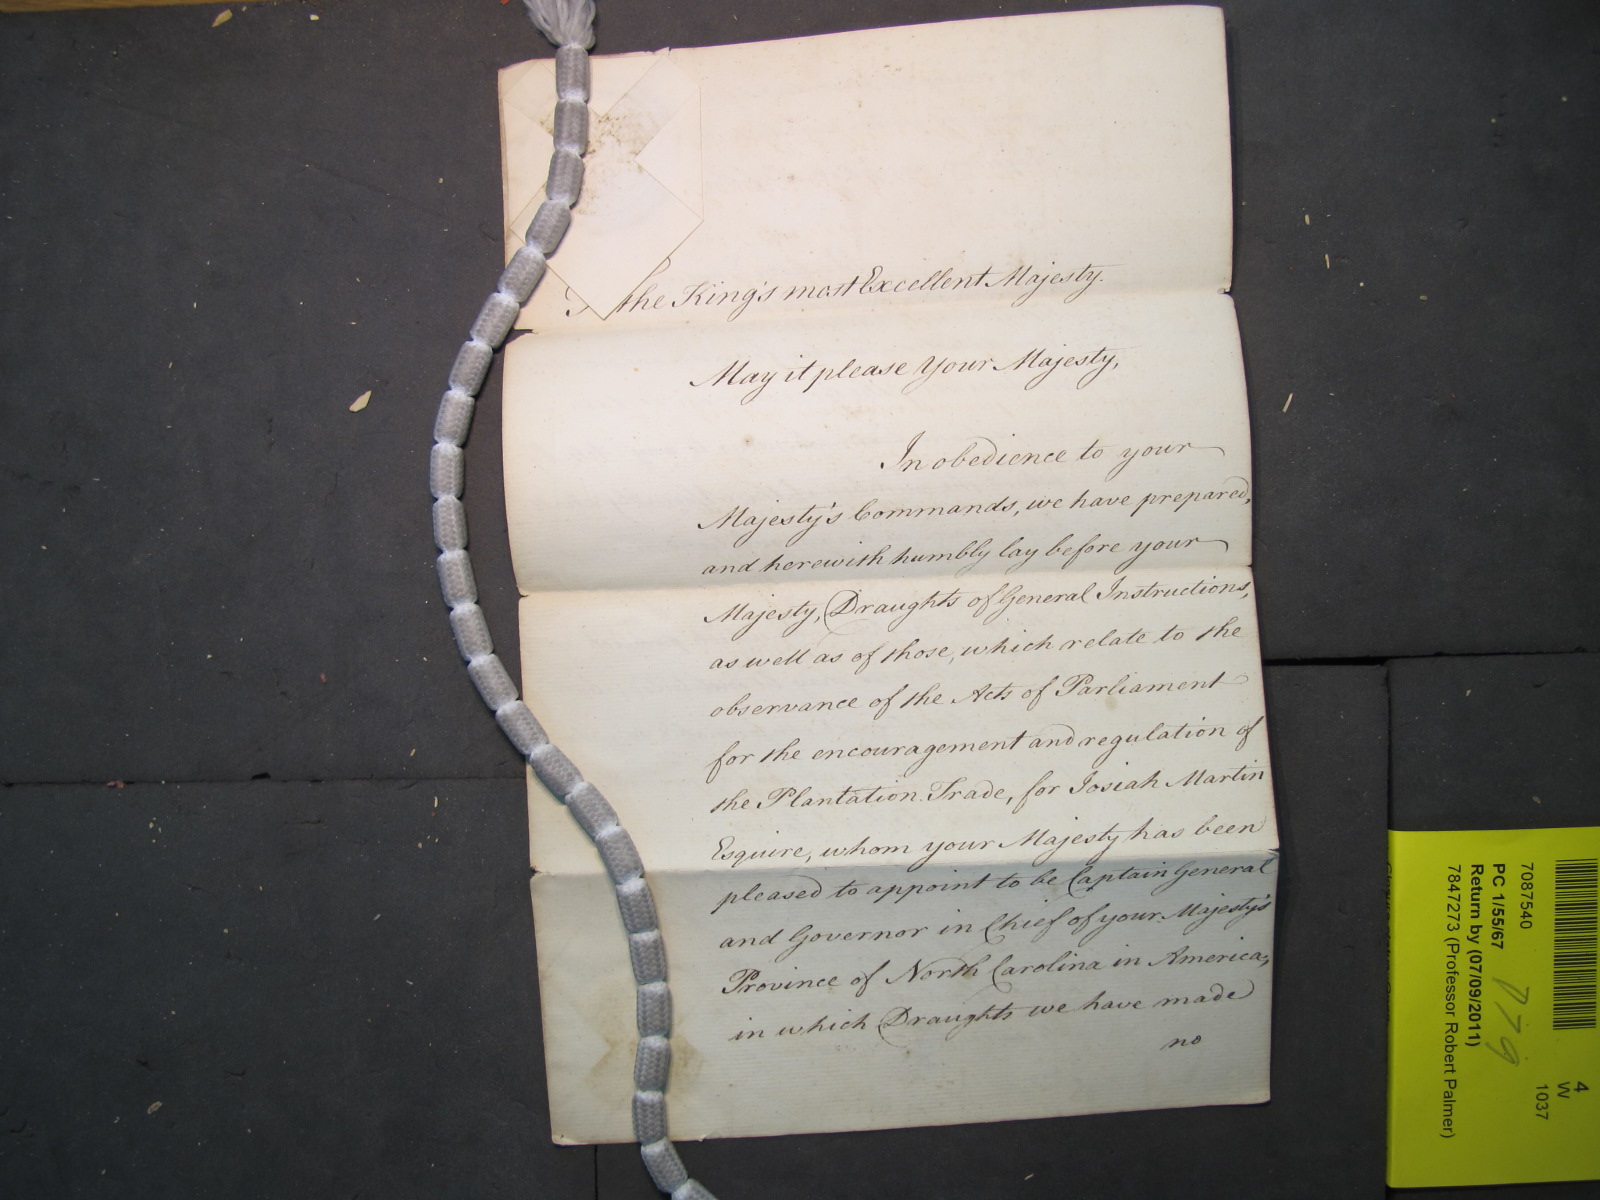 To the King's most Excellent Majesty.
May it please Your Majesty,
In obedience to your
Majesty's Commands, we have prepared,
and herewith humbly lay before your
Majesty, Draughts of General Instructions,
as well as of those, which relate to the
observance of the Acts of Parliament
for the encouragement and regulation of
the Plantation Trade, for Josiah Martin
Esquire, whom your Majesty has been
pleased to appoint to be Captain General
and Governor in Chief of your Majesty's
Province of North Carolina in America;
in which Draughts we have made
no
4
W
1037
7087540
PC 1/55/67
779
Return by (07/09/2011)
7847273 (Professor Robert Palmer)